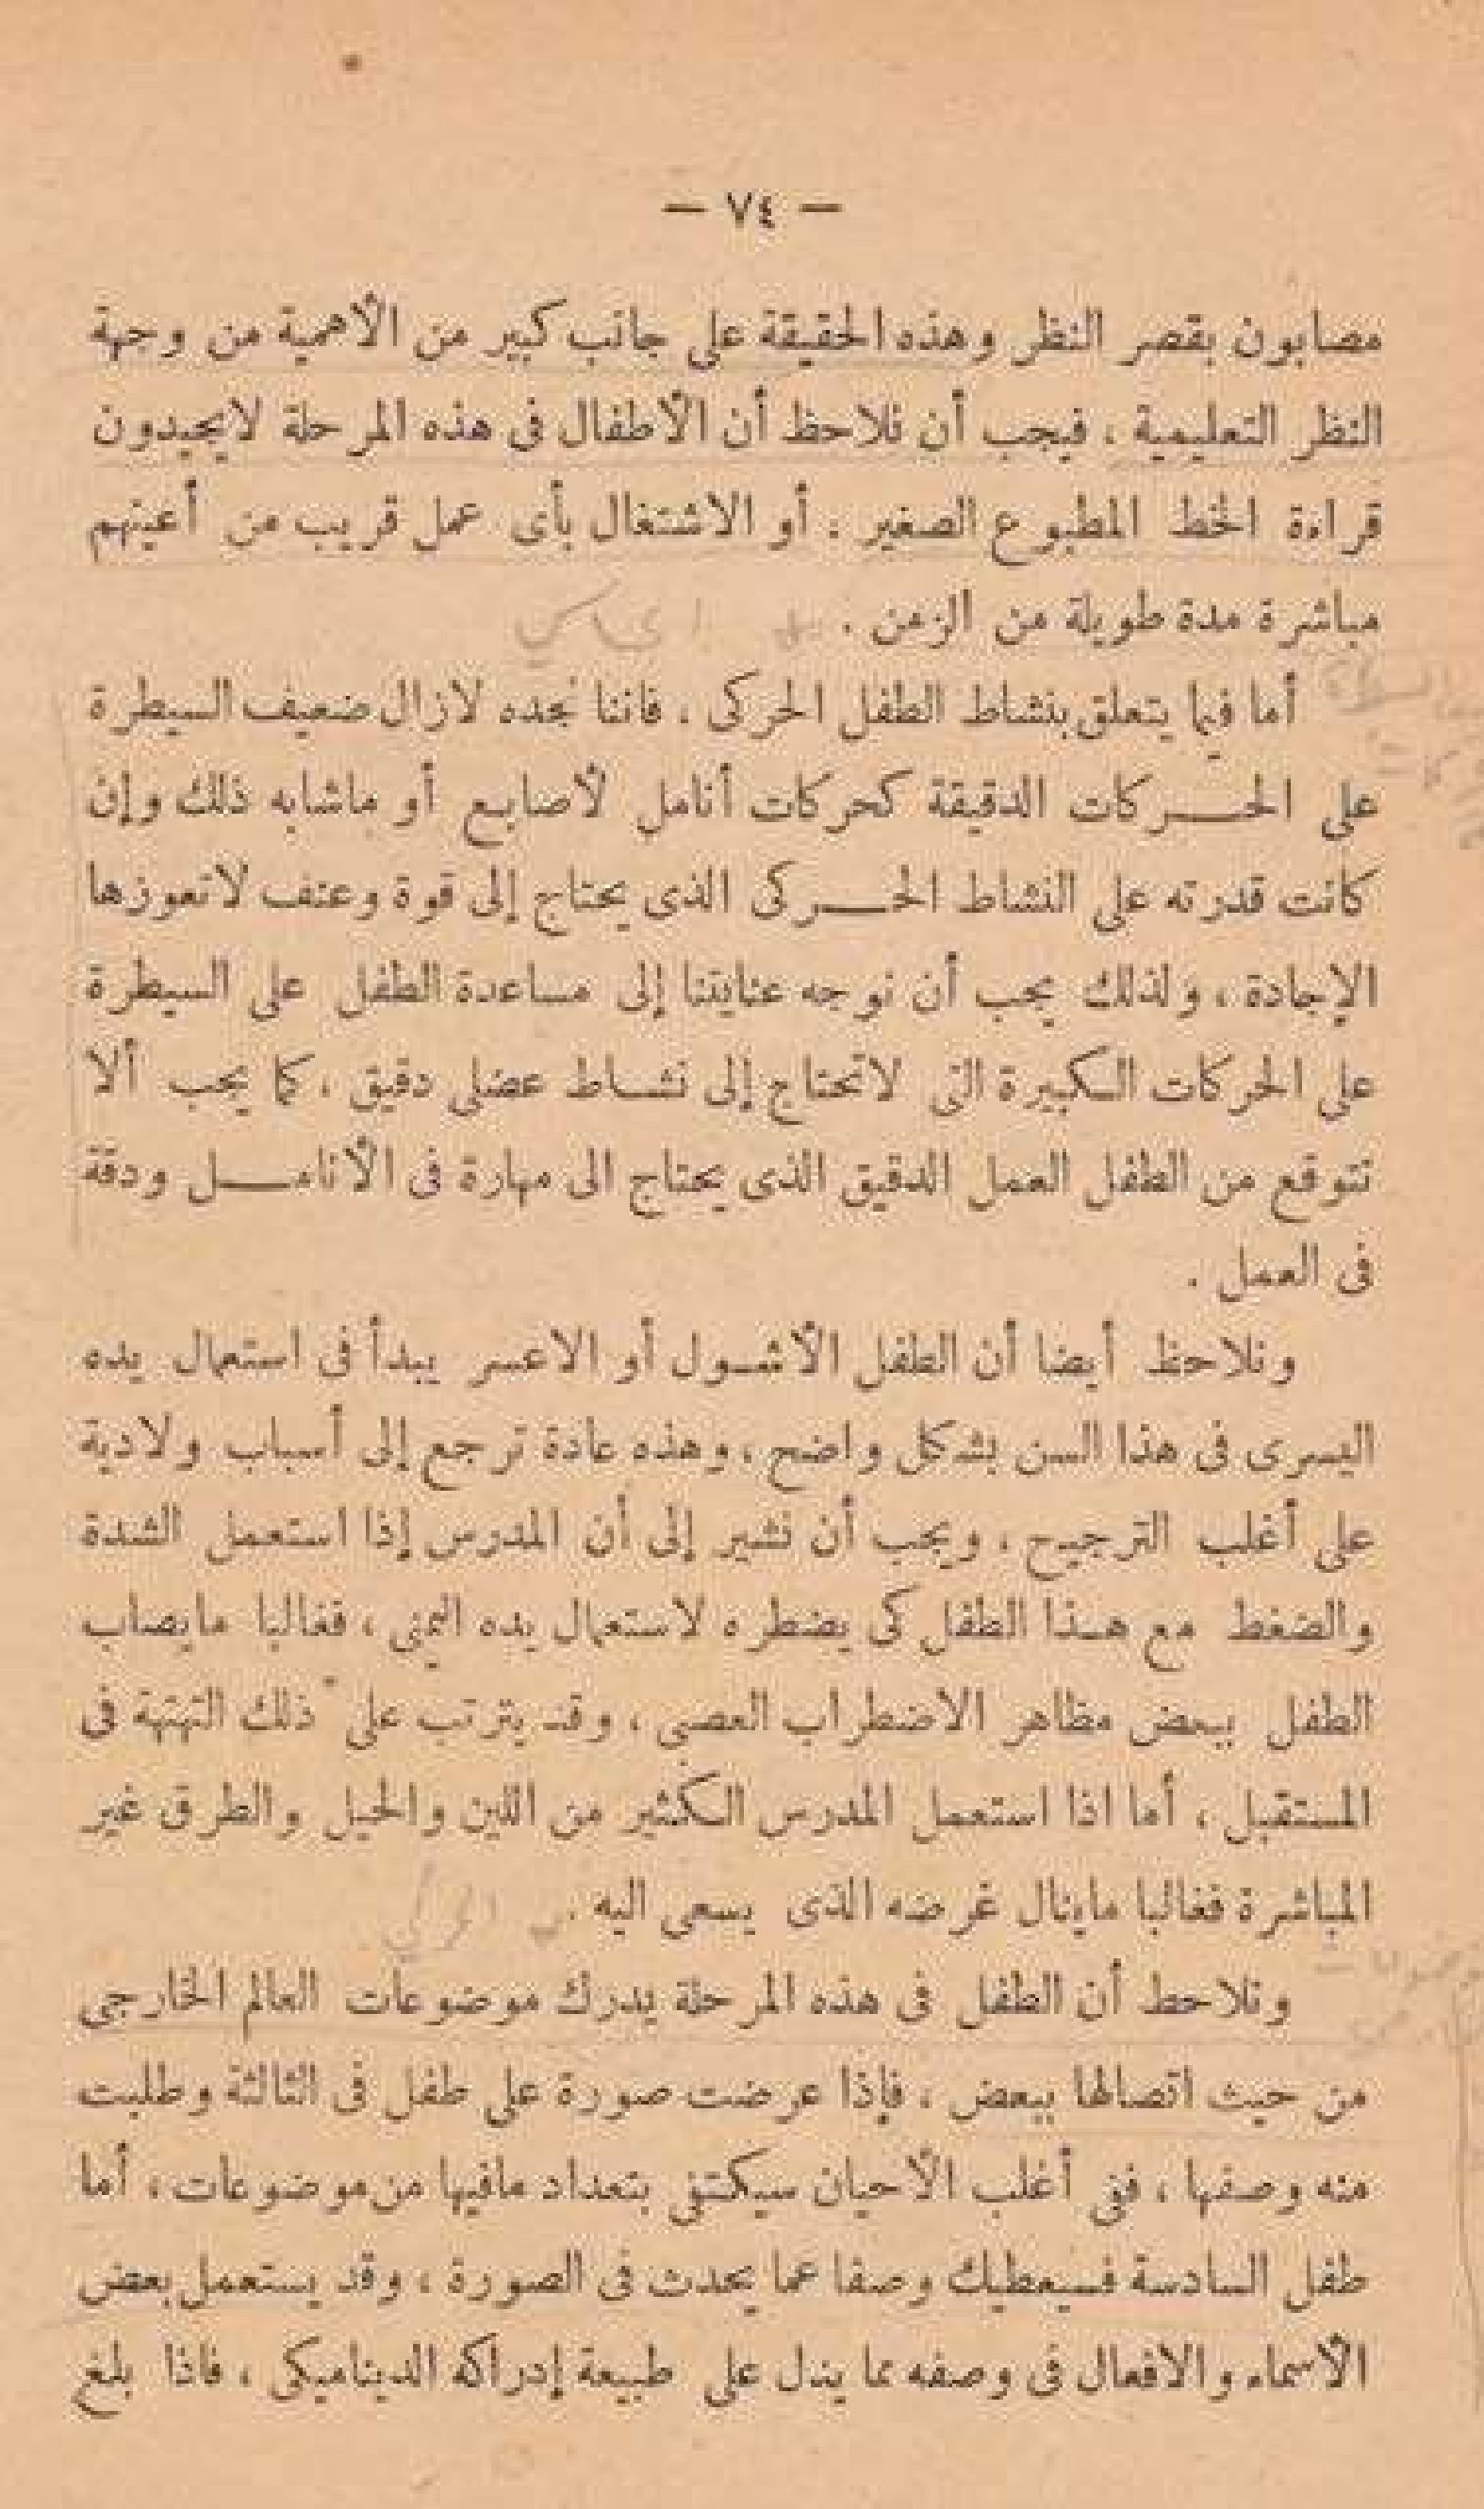 — ٧٤ —
مصابون بقصر النظر وهذه الحقيقة على جانب كبير من الأهمية من وجهة
النظر التعليمية ، فيجب أن نلاحظ أن الأطفال فى هذه المرحلة لايجيدون
قراءة الخط المطبوع الصغير . أو الاشتغال بأى عمل قريب من أعينهم
مباشرة مدة طويلة من الزمن .
أما فيما يتعلق بنشاط الطفل الحركى ، فاننا نجده لازال ضعيف السيطرة
على الحركات الدقيقة كحركات أنامل لأصابع أو ماشابه ذلك وإن
كانت قدرته على النشاط الحركى الذى يحتاج إلى قوة وعنف لاتعوزها
الإجادة ، ولذلك يجب أن نوجه عنايتنا إلى مساعدة الطفل على السيطرة
على الحركات الكبيرة التى لاتحتاج إلى نشاط عضلى دقيق ، كما يجب ألا
نتوقع من الطفل العمل الدقيق الذى يحتاج الى مهارة فى الأنامل ودقة
فى العمل .
ونلاحظ أيضا أن الطفل الأشول أو الاعسر يبدأ فى استعمال يده
اليسرى فى هذا السن بشكل واضح ، وهذه عادة ترجع إلى أسباب ولادية
على أغلب الترجيح ، ويجب أن نشير إلى أن المدرس إذا استعمل الشدة
والضغط مع هذا الطفل كى يضطره لاستعمال يده اليمنى ، فغالبا مايصاب
الطفل ببعض مظاهر الاضطراب العصبى ، وقد يترتب على ذلك التهتهة فى
المستقبل ، أما اذا استعمل المدرس الكثير من اللين والحيل والطرق غير
المباشرة فغالبا ماينال غرضه الذى يسعى اليه .
الحركي
ونلاحط أن الطفل فى هذه المرحلة يدرك موضوعات العالم الخارجى
من حيث اتصالها ببعض ، فإذا عرضت صورة على طفل فى الثالثة وطلبت
منه وصفها ، ففى أغلب الأحيان سيكتفى بتعداد مافيها من موضوعات ، أما
طفل السادسة فسيعطيك وصفا عما يحدث فى الصورة ، وقد يستعمل بعض
الأسماء والافعال فى وصفه مما يدل على طبيعة إدراكه الديناميكى ، فاذا بلغ